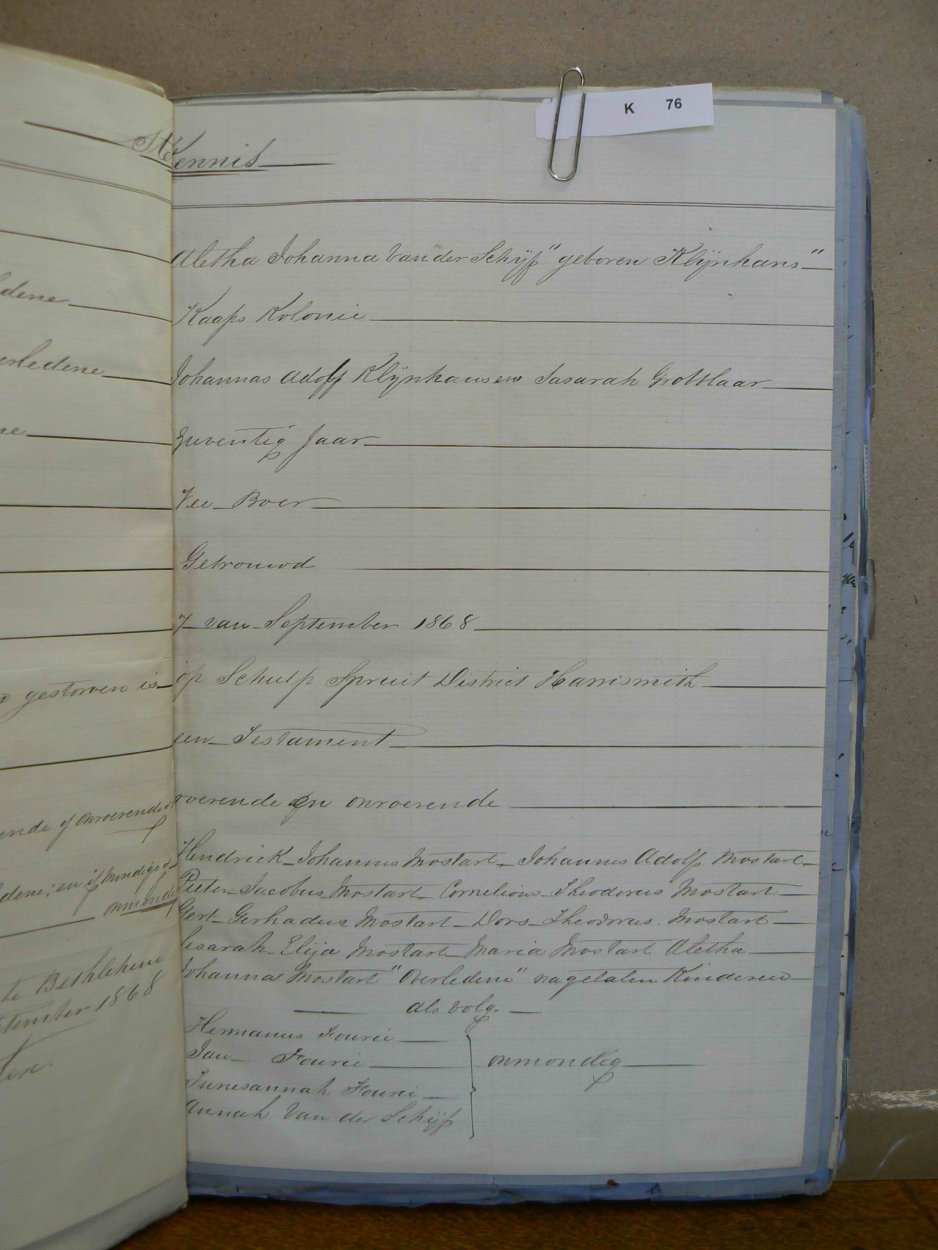 K 76
Kennis
Aletha Johanna Van der Schijf "geboren Klijnhans"
Kaaps Kolonie
Johannas Adolf Klijnhans en Sasarah Grobblaar
Zeventig Jaar
Vee Boer
Getrouwd
7 van September 1868
gestorven is op Schulp Spruit District Harrismith
een Testament
roerende en onroerende
Hendrick Johannes Mostart Johannes Adolf Mostart
Pieter Jacobus Mostart Cornelious Theodorus Mostart
Gert Gerhadus Mostart Dors Theodorus Mostart
Sesarah Elija Mostart Maria Mostart Aletha
Johanna Mostart "Overledene" nagelaten Kinderen
als volg
Hermanus Fourie
Jan Fourie onmondig
Sunesannah Fourie
Annah Van de Schijf
dene
erledene
ne
ende of onroerende
dene; en if mindige of
onmondig
te Bethlehem
tember 1868